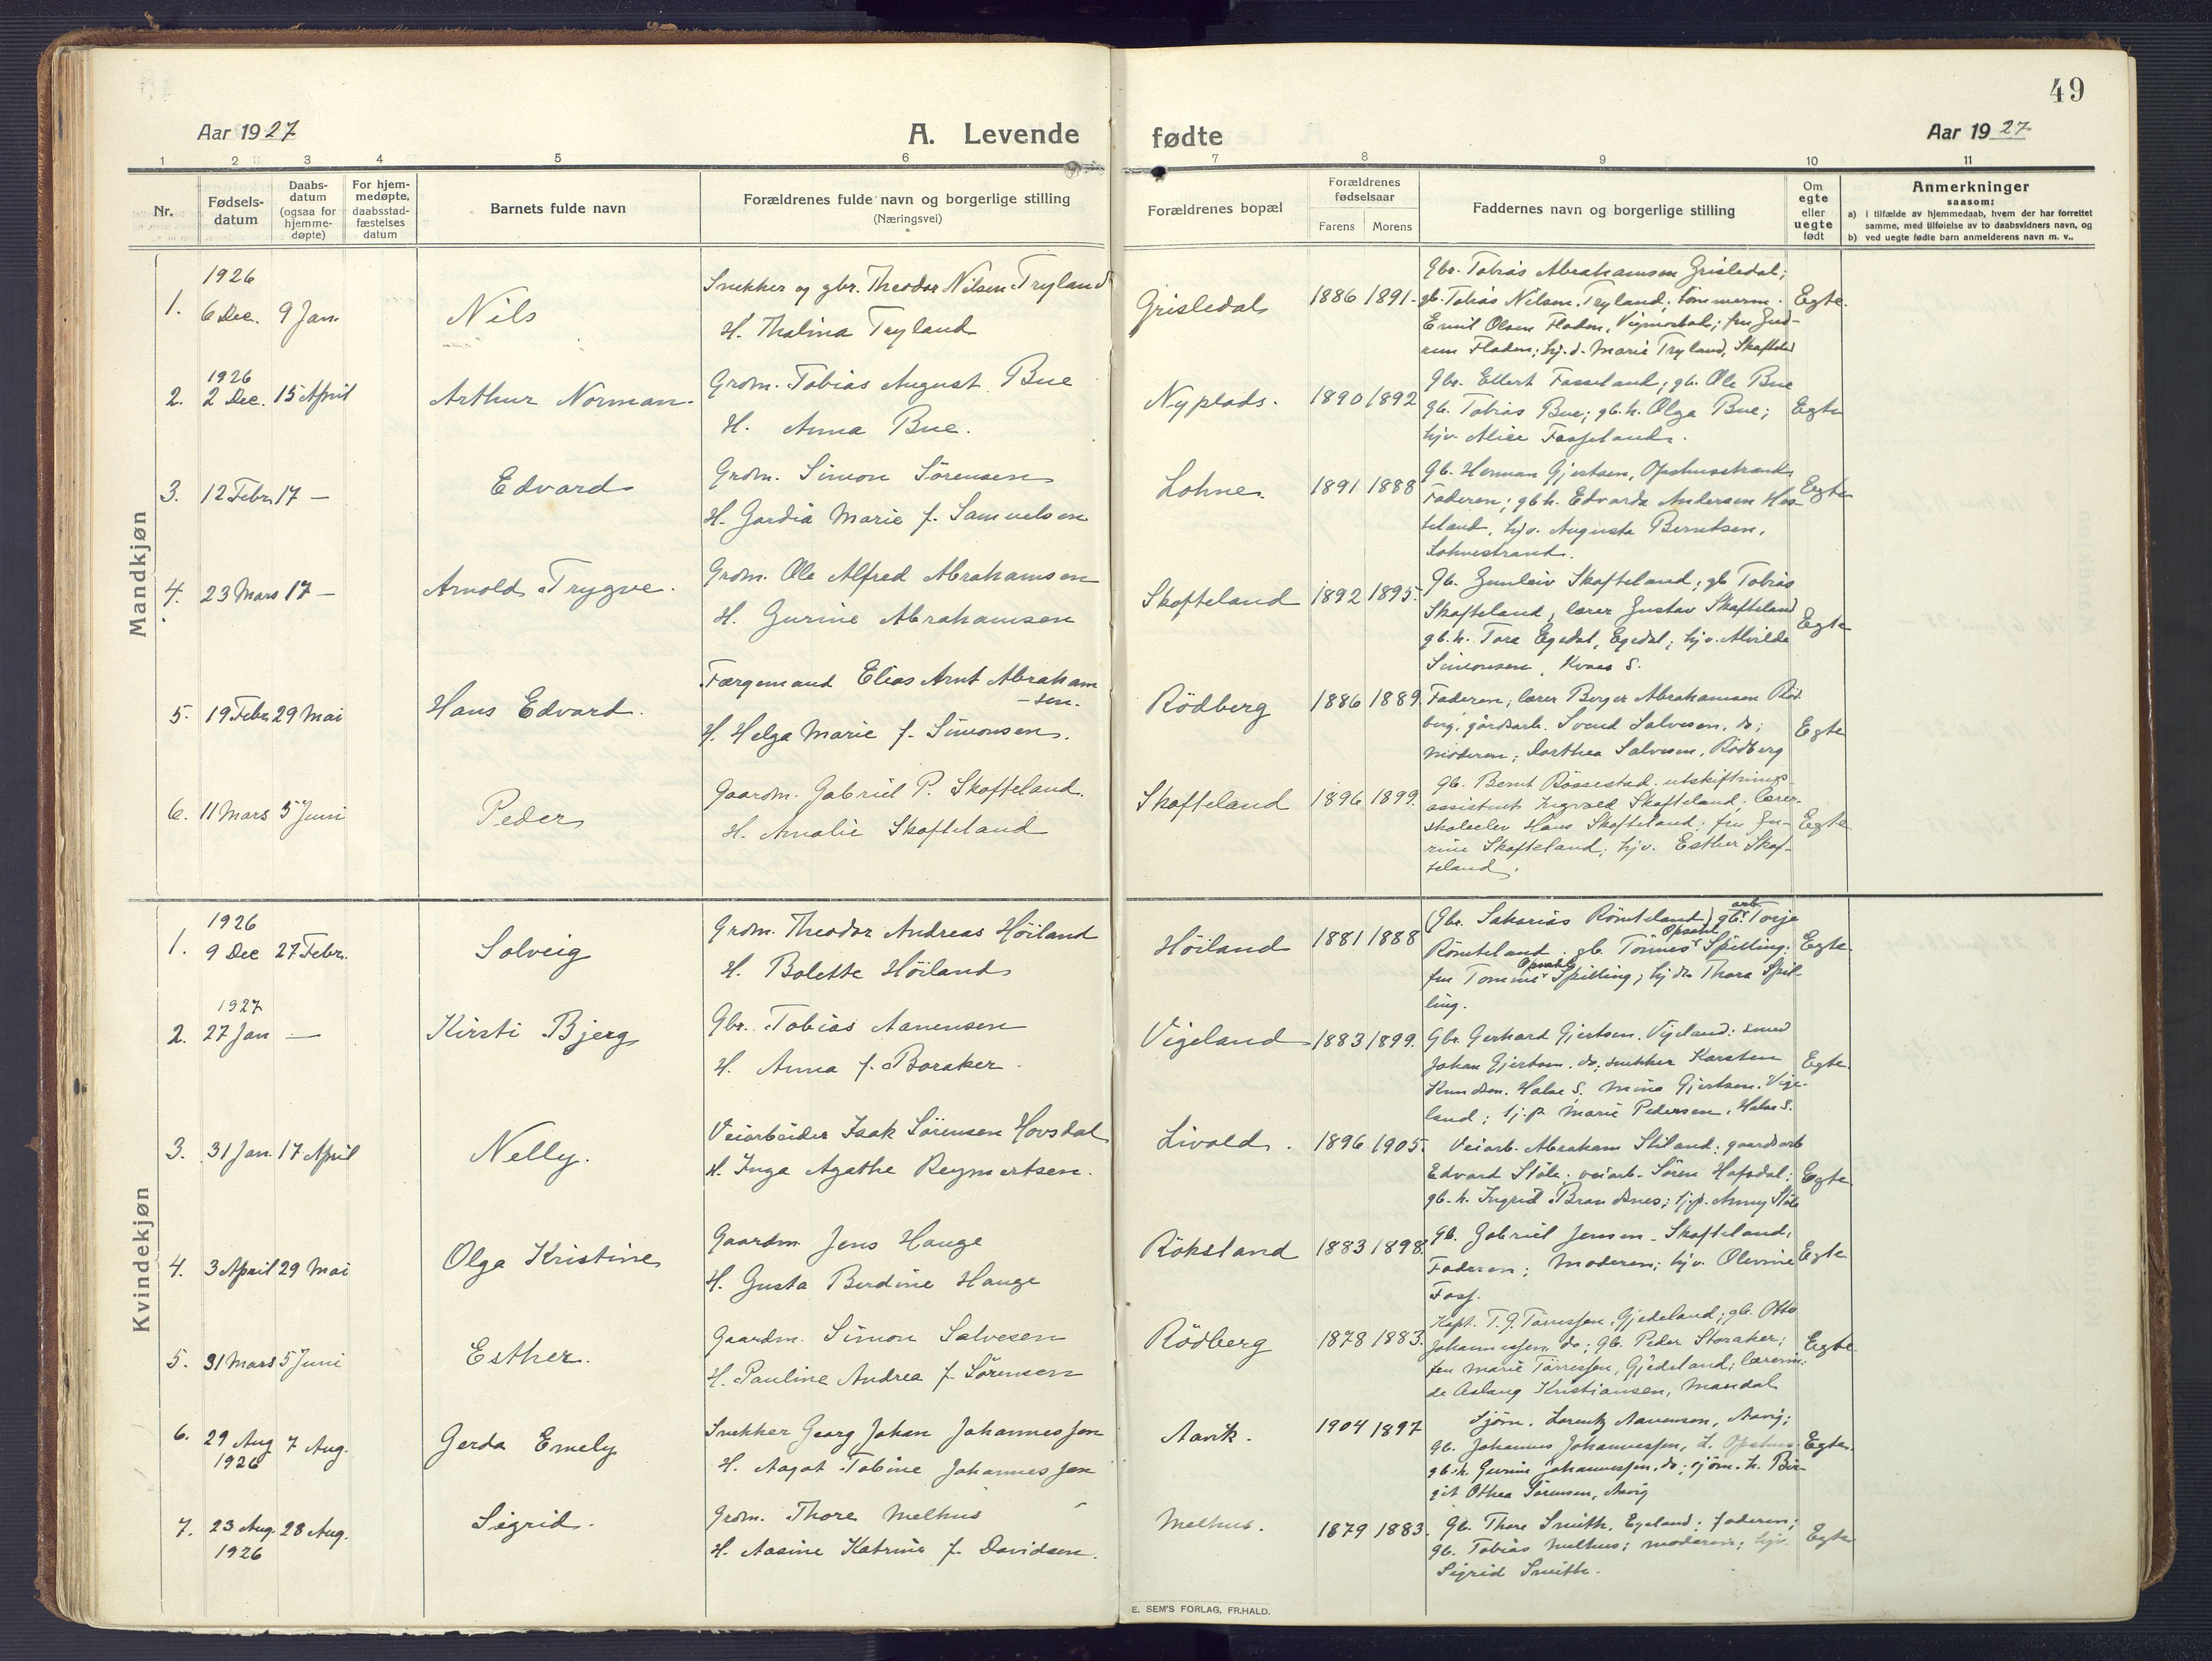 49
Aar 1927
A. Levende fødte
Aar 1927
1 2 3 4 5 6 7 8 9 10 11
Nr.
Fødsels-
datum
Daabs-
datum
(ogsaa for
hjemme-
døpte)
For hjem-
medøpte,
daabsstad-
fæstelses
datum
Barnets fulde navn
Forældrenes fulde navn og borgerlige stilling
(Næringsvei)
Forældrenes bopæl
Forældrenes
fødselsaar
Farens Morens
Faddernes navn og borgerlige stilling
Om
egte
eller
uegte
født
Anmerkninger
saasom:
a) i tilfælde av hjemmedaab, hvem der har forrettet
samme, med tilføielse av to daabsvidners navn, og
b) ved uegte fødte barn anmelderens navn m. v..
Mandkjøn
1926
1. 6 Dec. 9 Jan.
Nils
Snekker og gbr. Theodor Nilsen Tryland
H. Thalina Tryland
Grisledal
1886 1891.
Gbr. Tobias Abrahamsen Grisledal;
gb. Tobias Nilsen Tryland; tømmerm.
Emil Olsen Fladen, Vigmostad; fru Gud-
run Fladen; hj. d. Marie Tryland, Skofteld
Egte.
1926
2. 2 Dec. 15 April
Arthur Norman.
Grdm. Tobias August Bue
H. Anna Bue.
Nyplads.
1890 1892
Gbr. Ellert Fasseland; gb. Ole Bue
gb. Tobias Bue; gb. h. Olga Bue;
hjv. Alice Fasseland.
Egte
3. 12 Febr. 17 —
Edvard
Grdm. Simon Sörensen
H. Gardia Marie f. Samuelsen
Lohne.
1891 1888
Gb. Herman Gjertsen, Opshusstrand,
Faderen; gb h. Edvarda Andersen Hes-
teland, hjv. Augusta Berntsen,
Lohnestrand.
Egte
4. 23 Mars 17 —
Arnold Trygve.
Grdm. Ole Alfred Abrahamsen
H. Gurine Abrahamsen
Skofteland
1892 1895.
Gb. Gunleiv Skofteland; gb Tobias
Skofteland, lærer Gustav Skofteland
gb. h. Tora Egedal, Egedal; hjv. Alvilde
Simonsen, Kvaas S.
Egte
5. 19 Febr. 29 Mai
Hans Edvard.
Færgemand Elias Arnt Abraham
—sen.
H. Helga Marie f. Simonsen.
Rödberg
1886 1889.
Faderen; lærer Berger Abrahamsen Röd-
berg; gårdsarb. Svend Salvesen, do;
moderen; Dorthea Salvesen, Rödberg
Egte
6. 11 Mars 5 Juni
Peder
Gaardm. Gabriel P. Skofteland.
H. Amalie Skofteland
Skofteland
1896 1899.
Gb. Bernt Rössestad; utskiftnings-
assistent Ingvald Skofteland; lærer-
skoleelev Hans Skofteland; fru Gu-
rine Skofteland; hjv. Esther Skof-
teland.
Egte.
Kvindekjøn
1926
1. 9 Dec 27 Febr.
Solveig
Grdm. Theodor Andreas Höiland
H. Bolette Höiland
Höiland
1881 1888
arb.
(Gbr. Sakarias Römteland) gb. Torje
Opsahl
Römteland; gb. Tönnes Spilling;
Opsahl
fru Tomine Spilling; hj ds Thora Spil-
ling.
Egte
1927
2. 27 Jan —
Kirsti Bjerg
Gbr. Tobias Aanensen
H. Anna f. Boraker.
Vigeland
1883 1899.
Gbr. Gerhard Gjertsen, Vigeland; smed
Johan Gjertsen, do; snekker Karsten
Knudsen, Halse S. Mina Gjertsen, Vige-
land; hj. p Marie Pedersen, Halse S.
Egte.
3. 31 Jan. 17 April
Nelly.
Veiarbeider Isak Sörensen Hovsdal
H. Inga Agathe Reymertsen.
Livold.
1896 1905.
Veiarb. Abraham Stiland; gaardsarb
Edvard Støle; veiarb. Sören Hofsdal;
gb. h. Ingrid Brandsnes; hj. p. Anny Støle
Egte
4. 3 April 29 Mai
Olga Kristine
Gaardm. Jens Hauge
H. Gusta Berdine Hauge
Röksland
1883 1898.
Gb. Gabriel Jensen, Skofteland;
Faderen; Moderen; hjv. Olevine
Foss.
Egte
5. 31 Mars 5 Juni
Esther.
Gaardm. Simon Salvesen
H. Pauline Andrea f. Sörensen
Rödberg
1878 1883.
Kapt. T. G. Tönnessen, Gjedeland; gb. Otto
Johannessen, do; gb. Peder Storaker;
fru Marie Tönnessen, Gjedeland; lærerin-
de Aslaug Kristiansen, Mandal
Egte
6. 29 Aug 7 Aug.
1926
Gerda Emely
Snekker Georg Johan Johannessen
H. Aagot Tobine Johannessen
Aavik.
1904 1897
Sjöm. Lorentz Aanensen, Aavig;
gb. Johannes Johannessen, L. Opshus
gb. h. Gurine Johannessen, do; sjöm. h. Bir-
git Othea Sörensen, Aavig
Egte.
7. 23 Aug. 28 Aug.
1926
Sigrid.
Grdm. Thore Melhus
H. Aasine Katrine f. Davidsen.
Melhus.
1879 1883.
Gb. Thore Smith, Egeland; faderen;
gb. Tobias Melhus; moderen; hjv.
Sigrid Smith.
Egte
E. SEM'S FORLAG, FR.HALD.